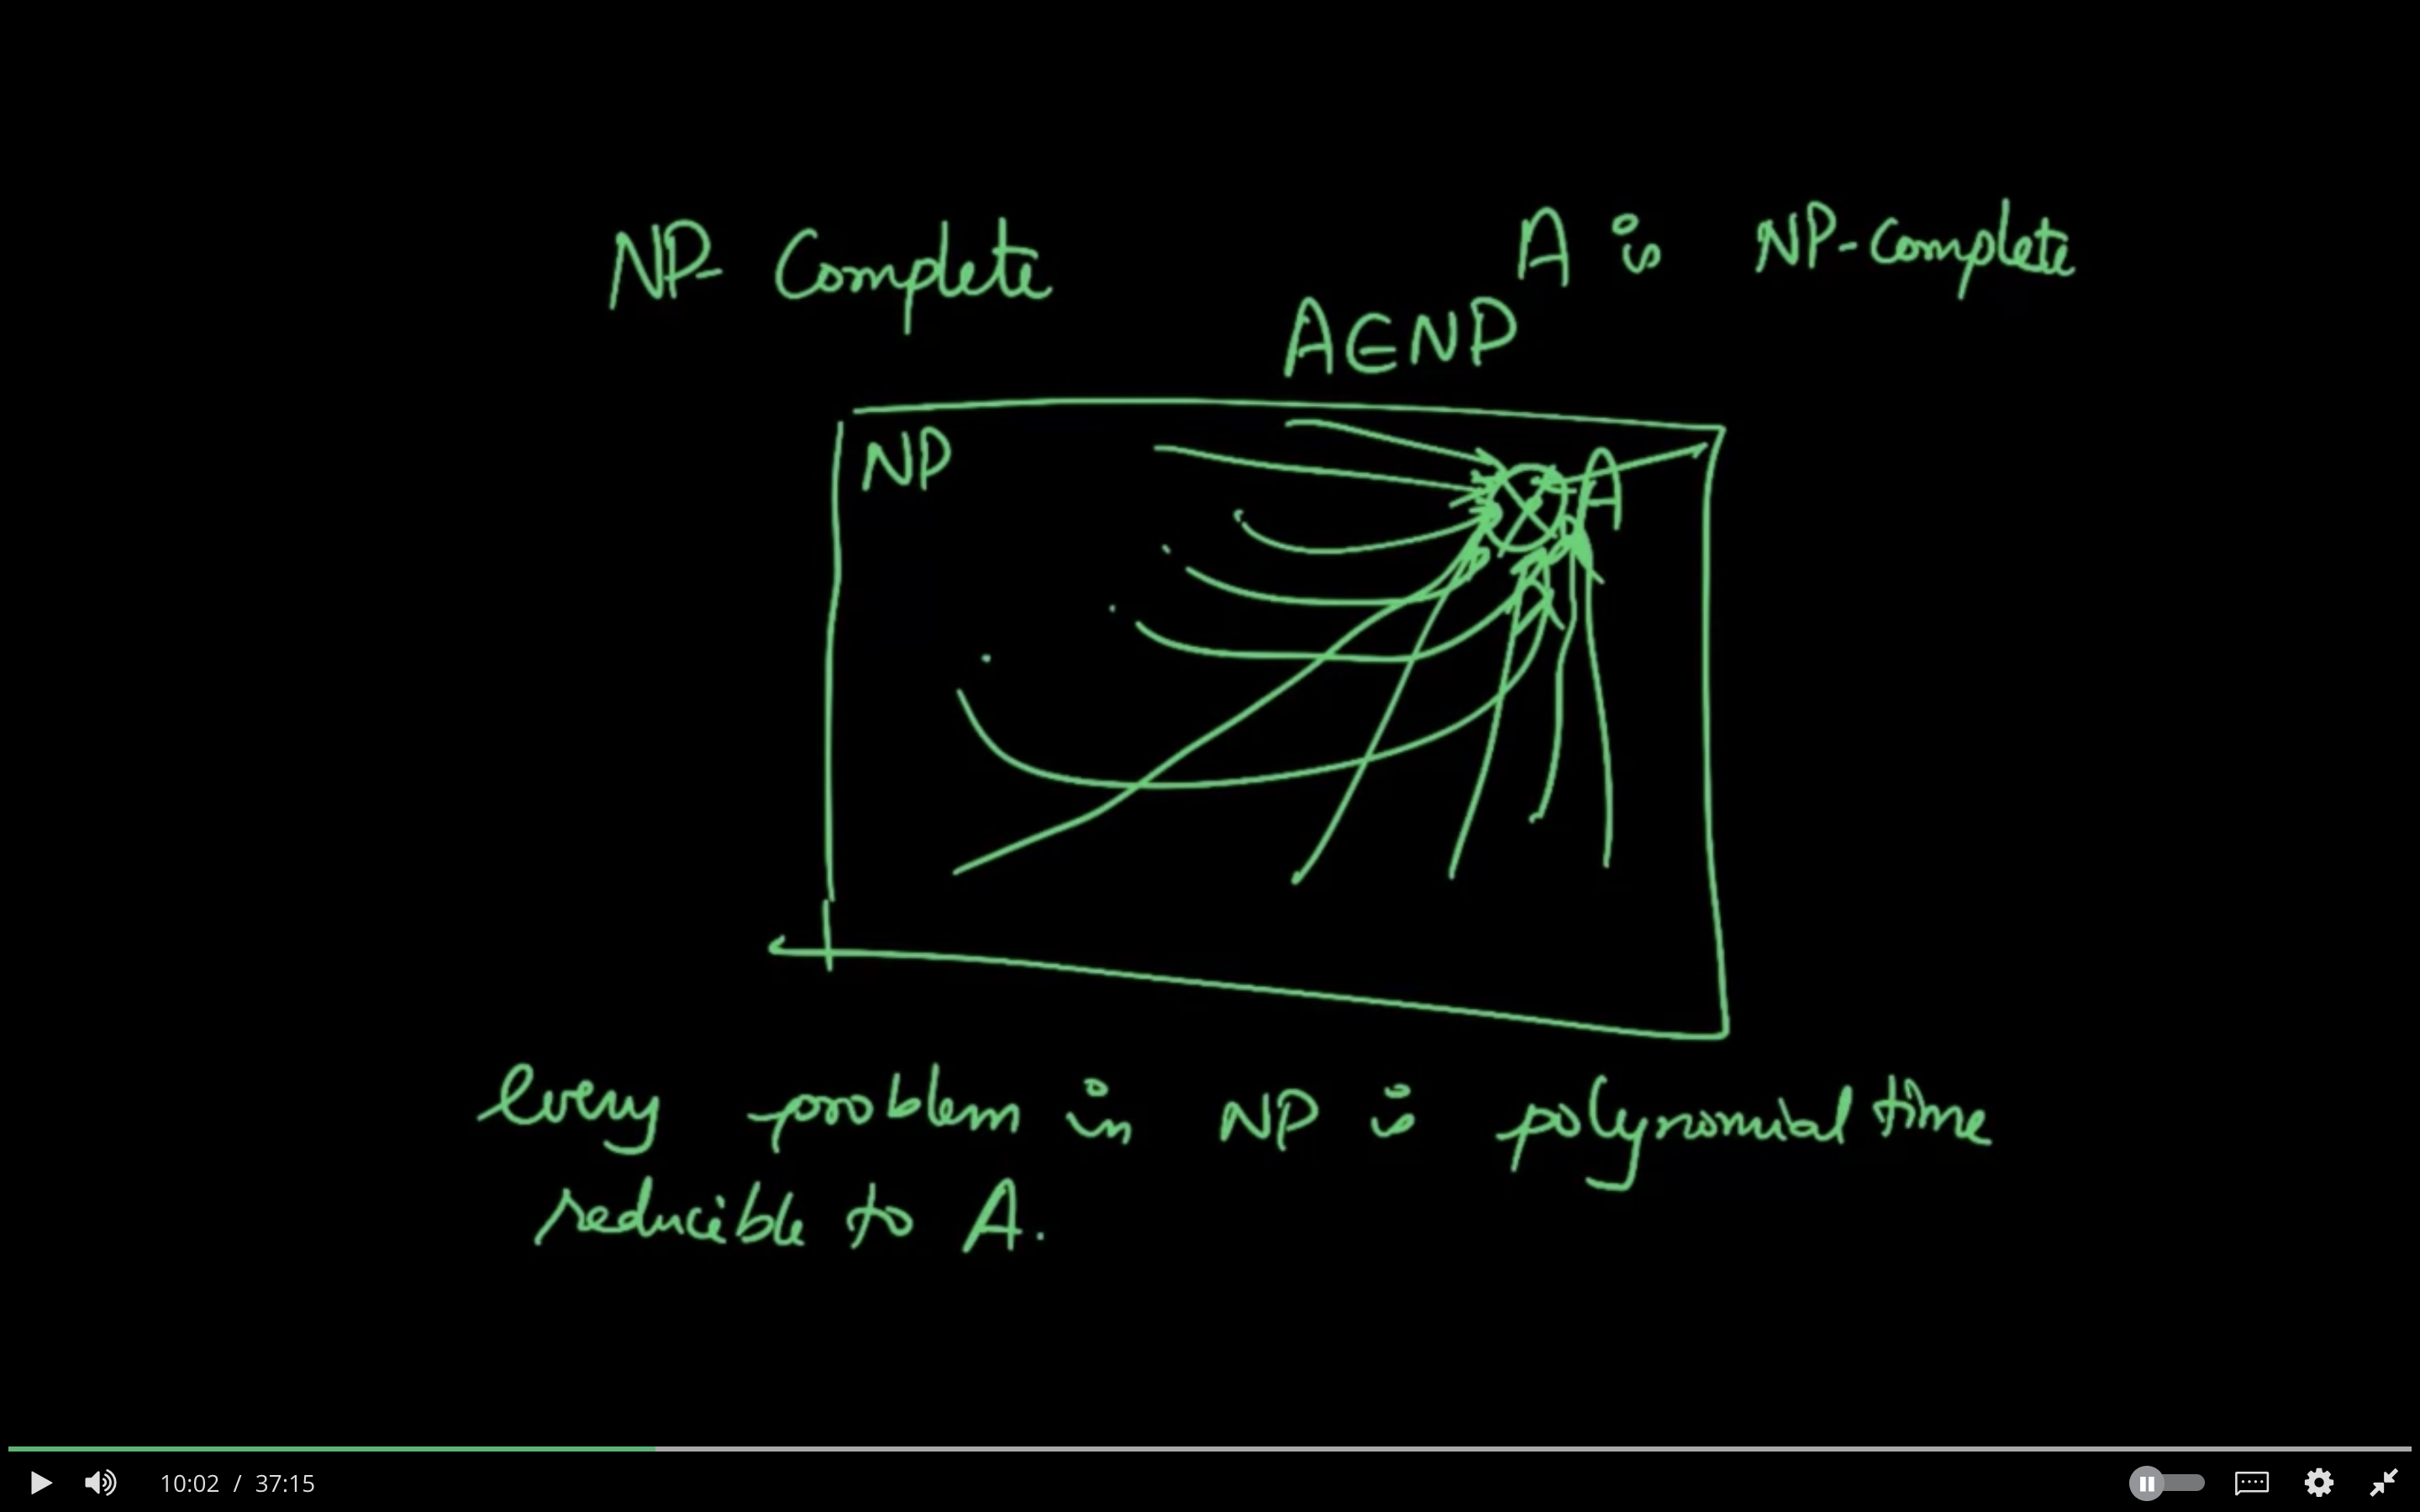 NP-Complete
A is NP-Complete
A∈NP
NP
A
Every problem in NP is polynomial time
reducible to A.
10:02 / 37:15